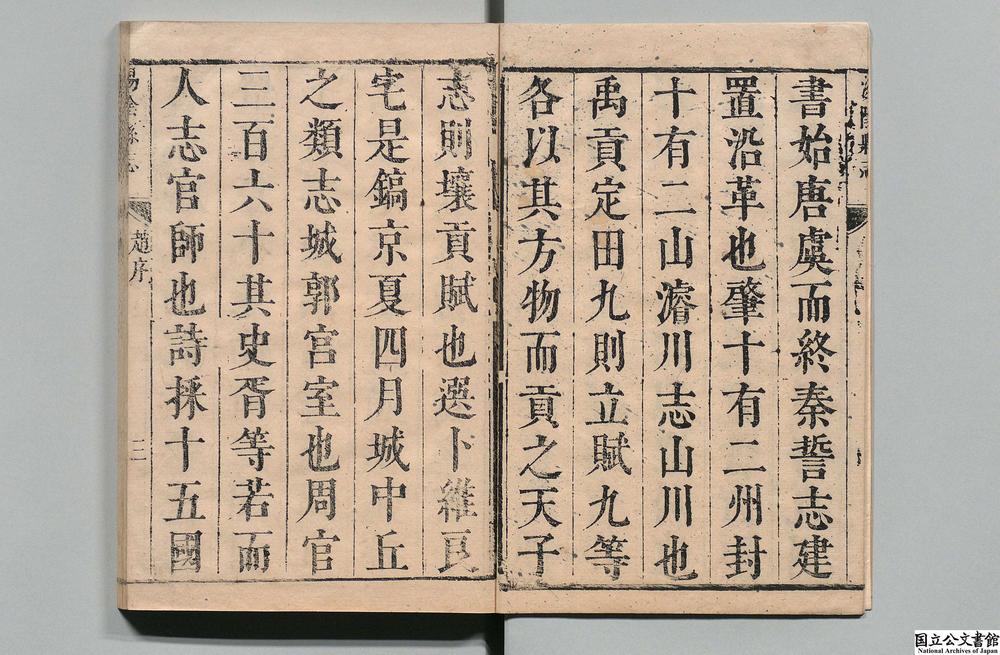 書始唐虞而終秦誓志建
置沿革也肇十有二州封
十有二山濬川志山川也
禹貢定田九則立賦九等
各以其方物而貢之天子
志則壤貢賦也選卜維
宅是鎬京夏四月城中丘
之類志城郭宮室也周官
三百六十其史胥等若而
人志官師也詩採十五國
陰縣志
趙序
二
国立公文書館
National Archives of Japan